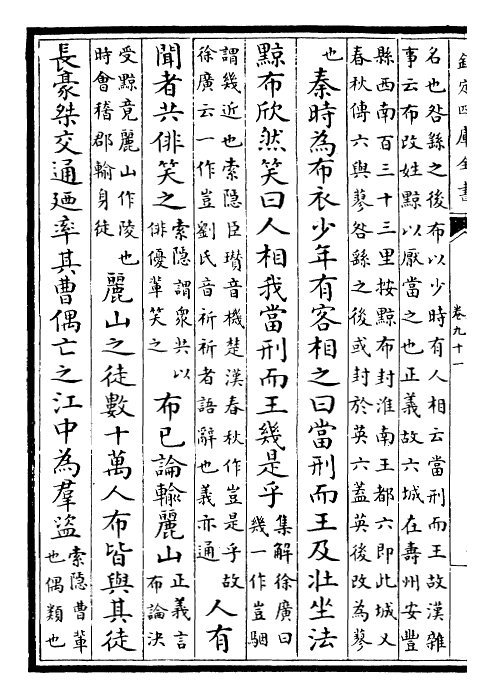 欽定四庫全書
卷九十一
名也咎繇之後布以少時有人相云當刑而王故漢雜
事云布改姓黥以厭當之也正義故六城在壽州安豐
縣西南百三十三里按黥布封淮南王都六即此城又
春秋傳六與蓼咎繇之後或封於英六蓋英後改為蓼
也
秦時為布衣少年有客相之曰當刑而王及壯坐法
黥布欣然笑曰人相我當刑而王幾是乎
集解徐廣曰
幾一作豈駰
謂幾近也索隱臣瓚音機楚漢春秋作豈是乎故
徐廣云一作豈劉氏音祈祈者語辭也義亦通
人有
聞者共俳笑之
索隱謂衆共以
俳優輩笑之
布已論輸麗山
正義言
布論決
受黥竟麗山作陵也
時會稽郡輸身徒
麗山之徒數十萬人布皆與其徒
長豪桀交通廼率其曹偶亡之江中為羣盜
索隱曹輩
也偶類也